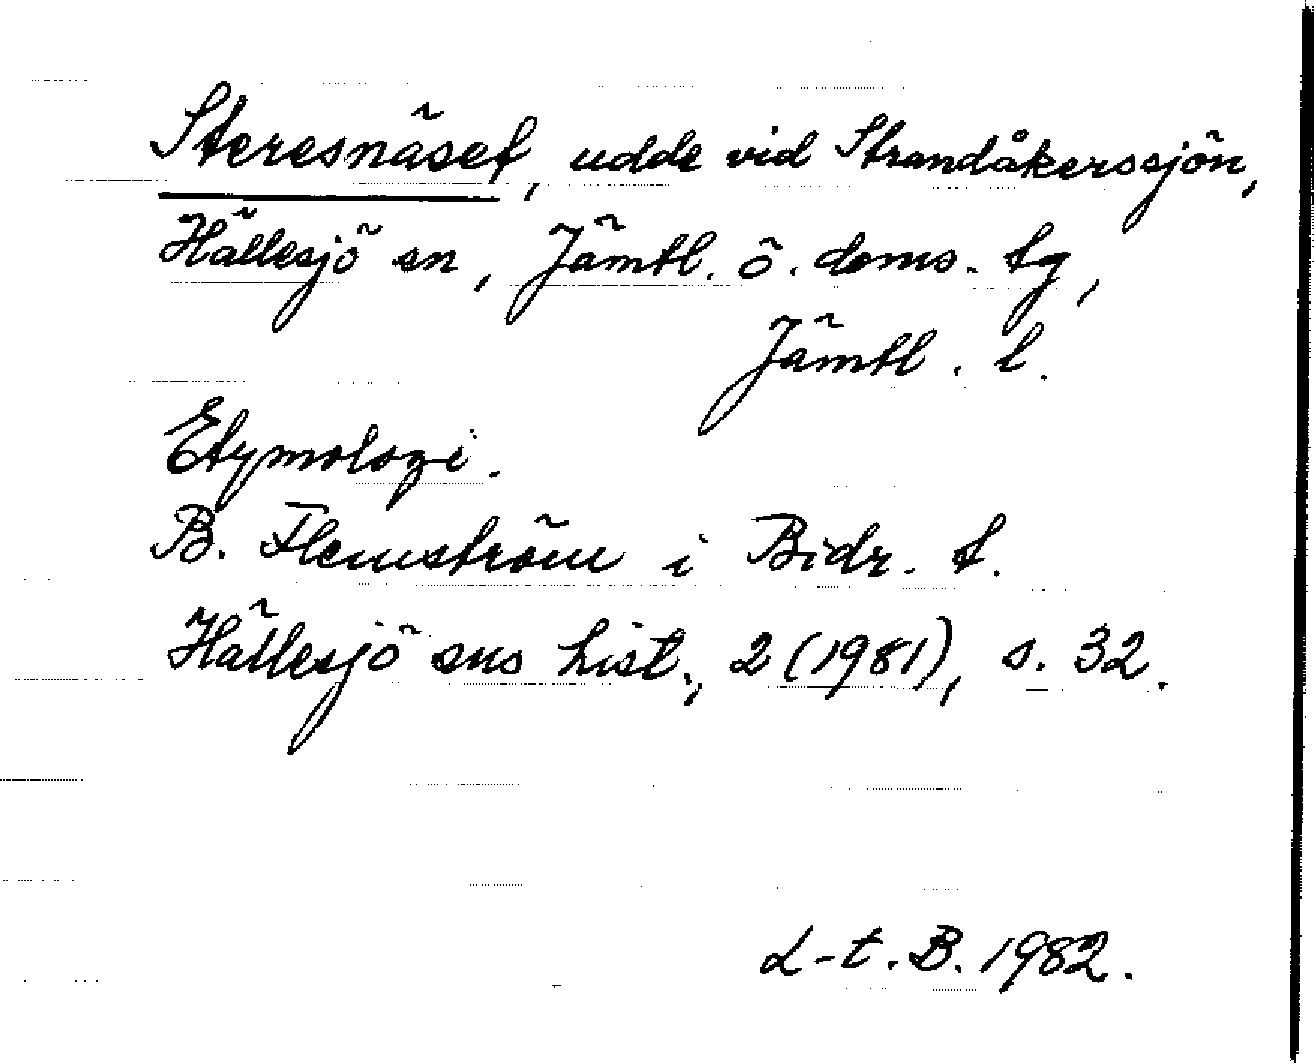 Steresnäset, udde vid Strandåkerssjön,
Hällesjö sn, Jämtl. ö. doms. tg,
Jämtl. l.
Etymologi.
B. Flemström i Bidr. t.
Hällesjö sns hist., 2 (1981), s. 32.
L-t. B. 1982.